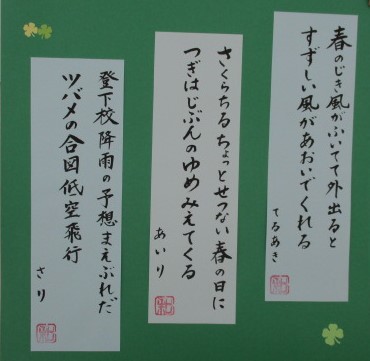 春のじき風がふいてて外出ると
すずしい風があおいでくれる
てるあき
さくらちるちょっとせつない春の日に
つぎはじぶんのゆめみえてくる
あいり
登下校降雨の予想まえぶれだ
ツバメの合図低空飛行
さり